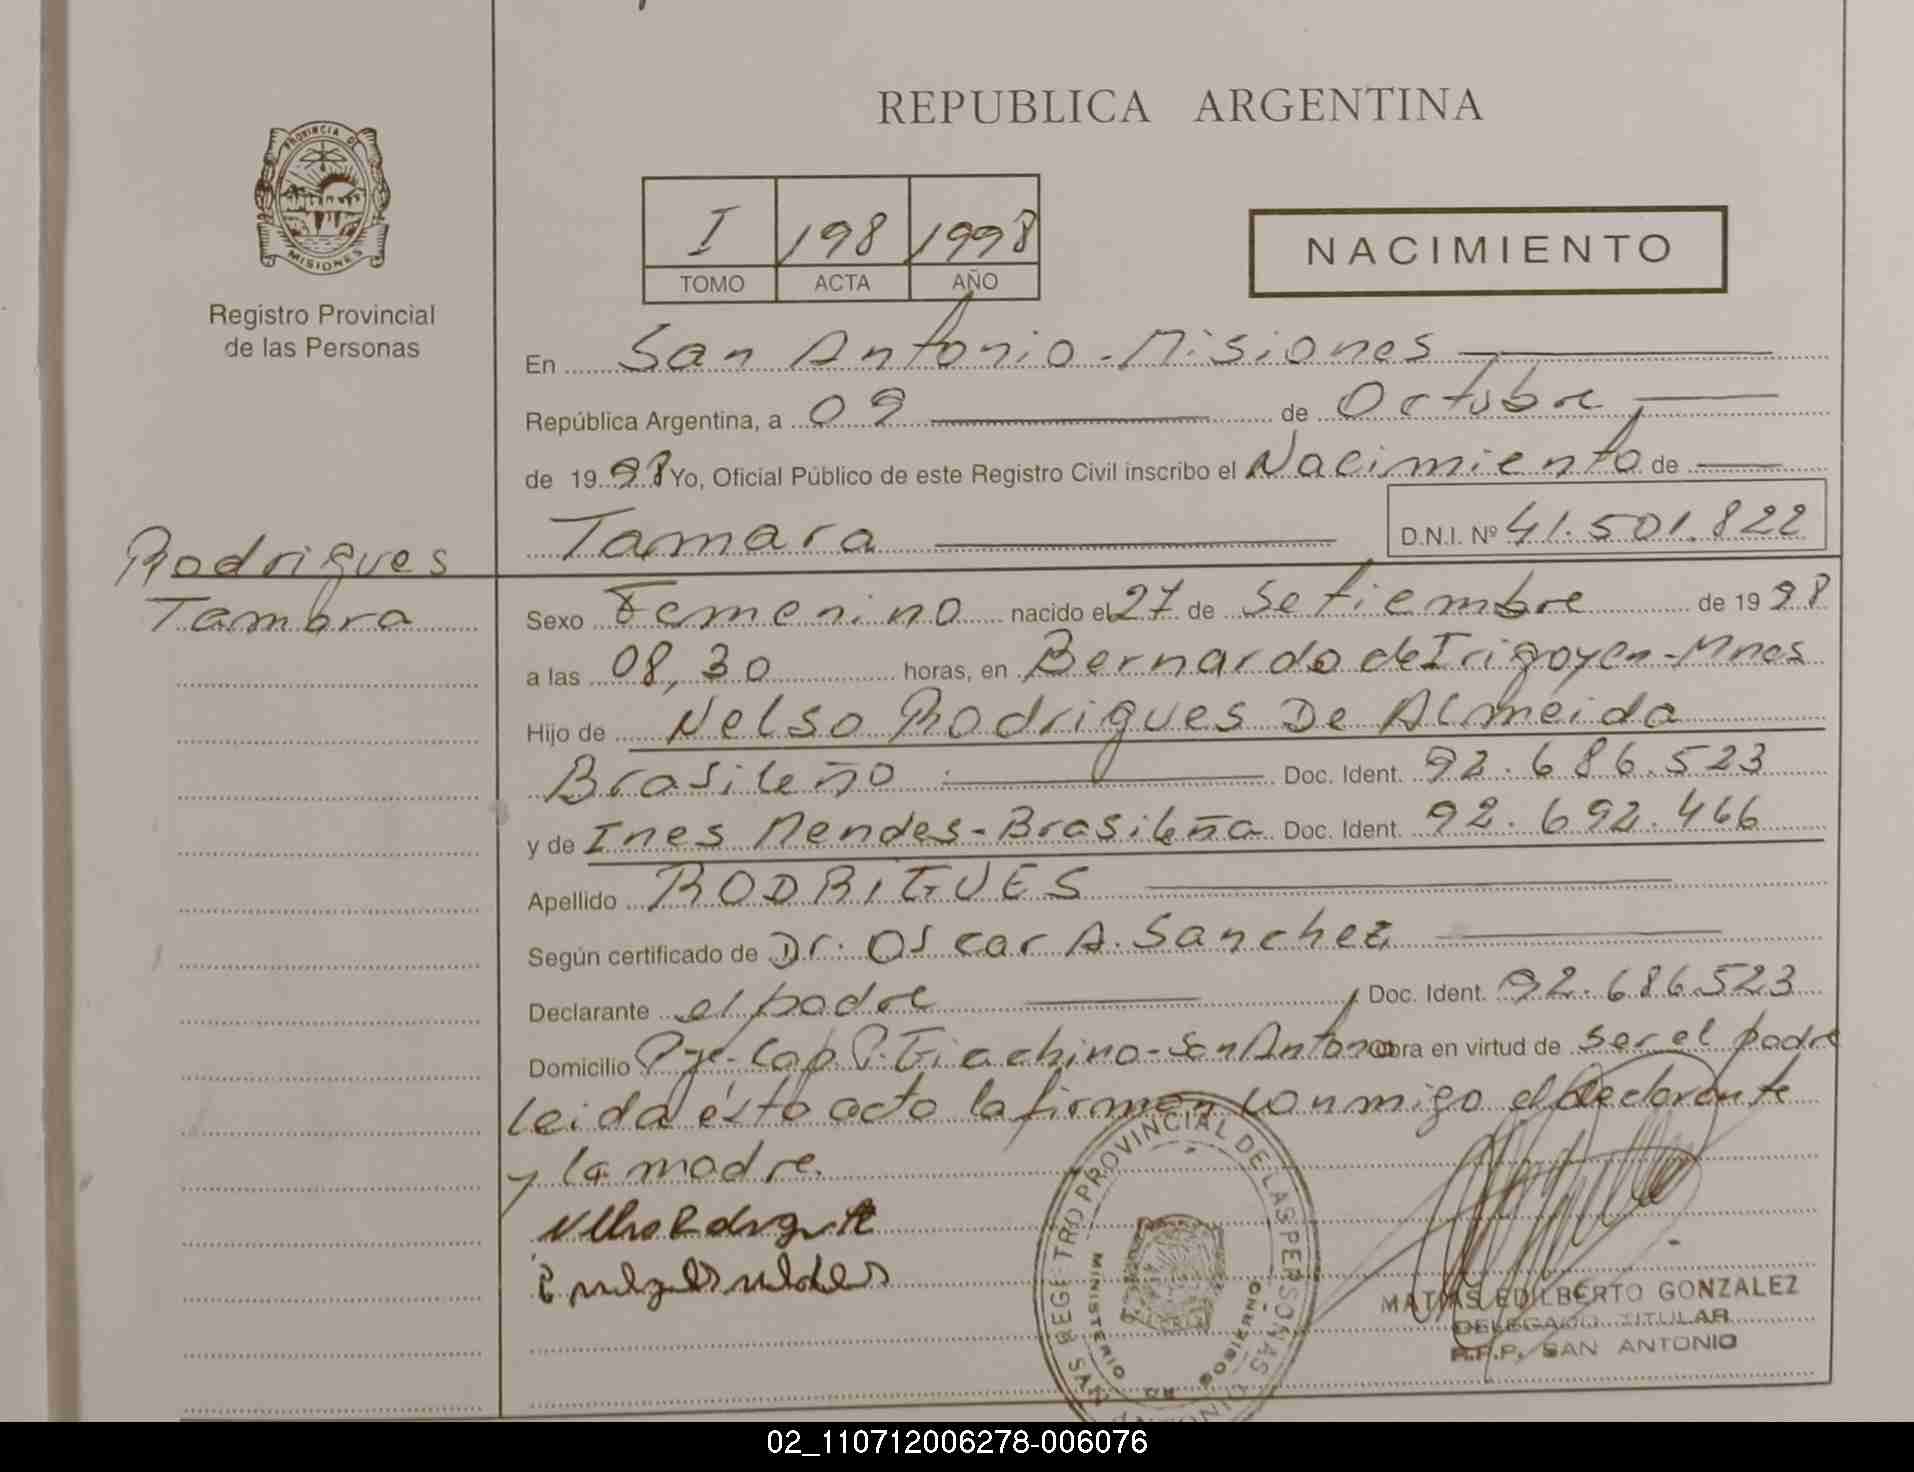 REPUBLICA ARGENTINA
PROVINCIA DE
MISIONES
Registro Provincial
de las Personas
I 198 1998
TOMO ACTA AÑO
NACIMIENTO
En San Antonio - Misiones
República Argentina, a 09 de Octubre
de 1998 Yo, Oficial Público de este Registro Civil inscribo el Nacimiento de
Tamara D.N.I. Nº 41.501.822
Rodrigues
Tamara
Sexo Femenino nacido el 27 de Setiembre de 1998
a las 08,30 horas, en Bernardo de Irigoyen - Mnes
Hijo de Nelso Rodrigues De Almeida
Brasileño Doc. Ident. 92.686.523
y de Ines Mendes - Brasileña Doc. Ident. 92.692.466
Apellido RODRIGUES
Según certificado de Dr. Oscar A. Sanchez
Declarante el padre Doc. Ident. 92.686.523
Domicilio Pje. Cap. P. Giachino - San Antonio obra en virtud de ser el padre
Leida ésta acta la firman conmigo el declarante
y la madre.
REGISTRO PROVINCIAL DE LAS PERSONAS
MINISTERIO DE GOBIERNO
SAN ANTONIO
MATIAS EDILBERTO GONZALEZ
DELEGADO TITULAR
R.P.P. SAN ANTONIO
02_110712006278-006076